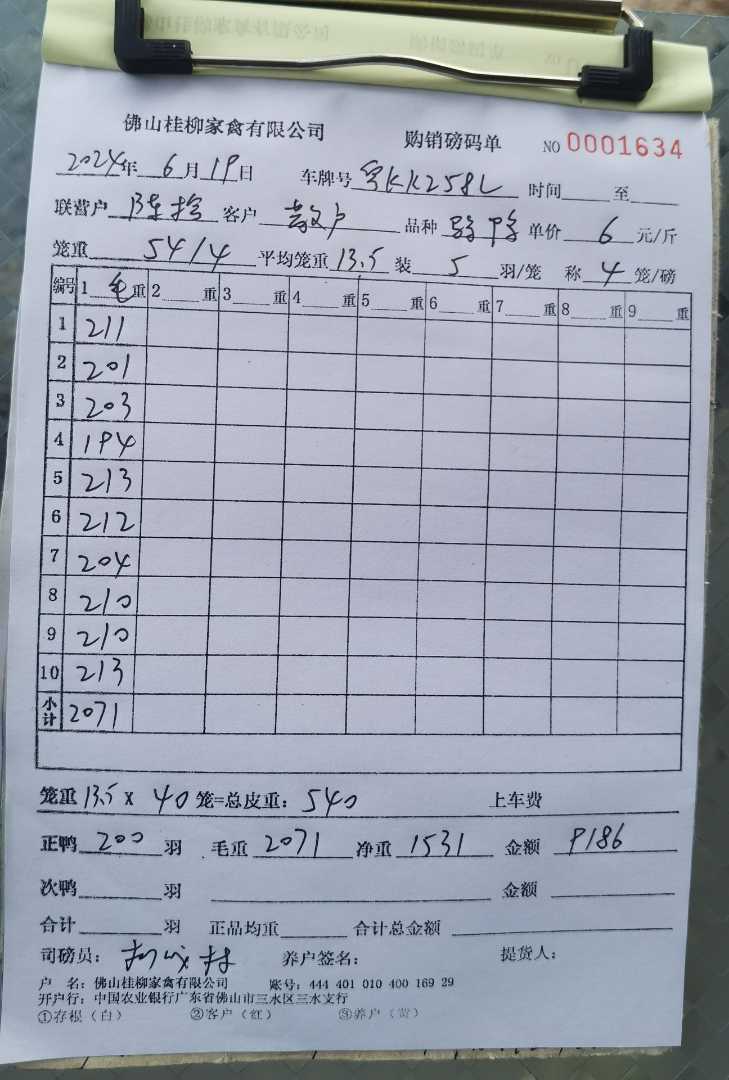 佛山桂柳家禽有限公司 购销磅码单 NO 0001634
2024年 6 月 19 日 车牌号 粤KK258L 时间 至
联营户 陈 客户 散户 品种 单价 6 元/斤
笼重 54/4 平均笼重 13.5 装 5 羽/笼 称 4 笼/磅
编号 1 毛 重 2 重 3 重 4 重 5 重 6 重 7 重 8 重 9 重
1 211
2 201
3 203
4 194
5 213
6 212
7 204
8 210
9 210
10 213
小计 2071
笼重 13.5 X 40 笼=总皮重: 540 上车费
正鸭 200 羽 毛重 2071 净重 1531 金额 9186
次鸭 羽 金额
合计 羽 正品均重 合计总金额
司磅员: 养户签名: 提货人:
户 名: 佛山桂柳家禽有限公司 账号: 444 401 010 400 169 29
开户行: 中国农业银行广东省佛山市三水区三水支行
①存根（白） ②客户（红） ③养户（黄）